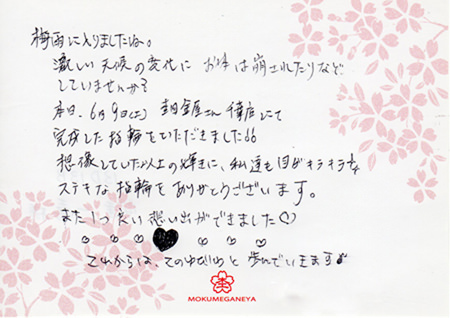 梅雨に入りましたね。
激しい天候の変化に お体は崩されたりなど
していませんか?
本日、6月9日(土) 杢目金屋さん 本店にて
完成した指輪をいただきました!!
想像していた以上の輝きに、私達も目がキラキラ☆
ステキな指輪をありがとうございます。
また1つ良い想い出ができました♡
これからは、このゆびわと歩んでいきます♪
MOKUMEGANEYA